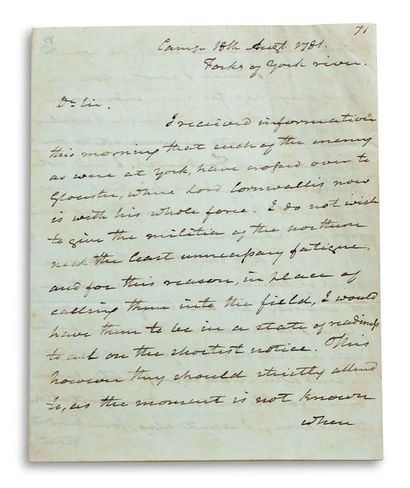 71
Camp 18th Augt 1781.
Forks of York river.
Dr Sir.
I received information
this morning that such of the enemy
as were at York, have crossed over to
Gloucster, where Lord Cornwallis now
is with his whole force. I do not wish
to give the militia of the northern
neck the least unnecessary fatigue,
and for this reason, in place of
calling them into the field, I would
have them to be in a state of readiness
to act on the shortest notice. This
however they should strictly attend
to, as the moment is not known
when